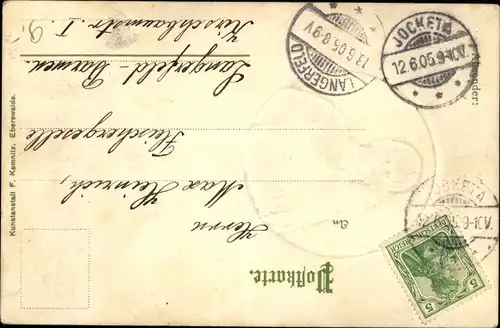 Postkarte.
An
Herrn
Max Heinrich,
Fleischergeselle
Langerfeld-Barmen.
Kirschbaumstr I. 9.
Absender:
JOCKETA
12.6.05.9-10.V.
* * *
LANGERFELD
13.6.05.8-9V
JOCKETA
9-10.V.
DEUTSCHES REICH
5 5
Kunstanstalt F. Kemnitz, Eberswalde.